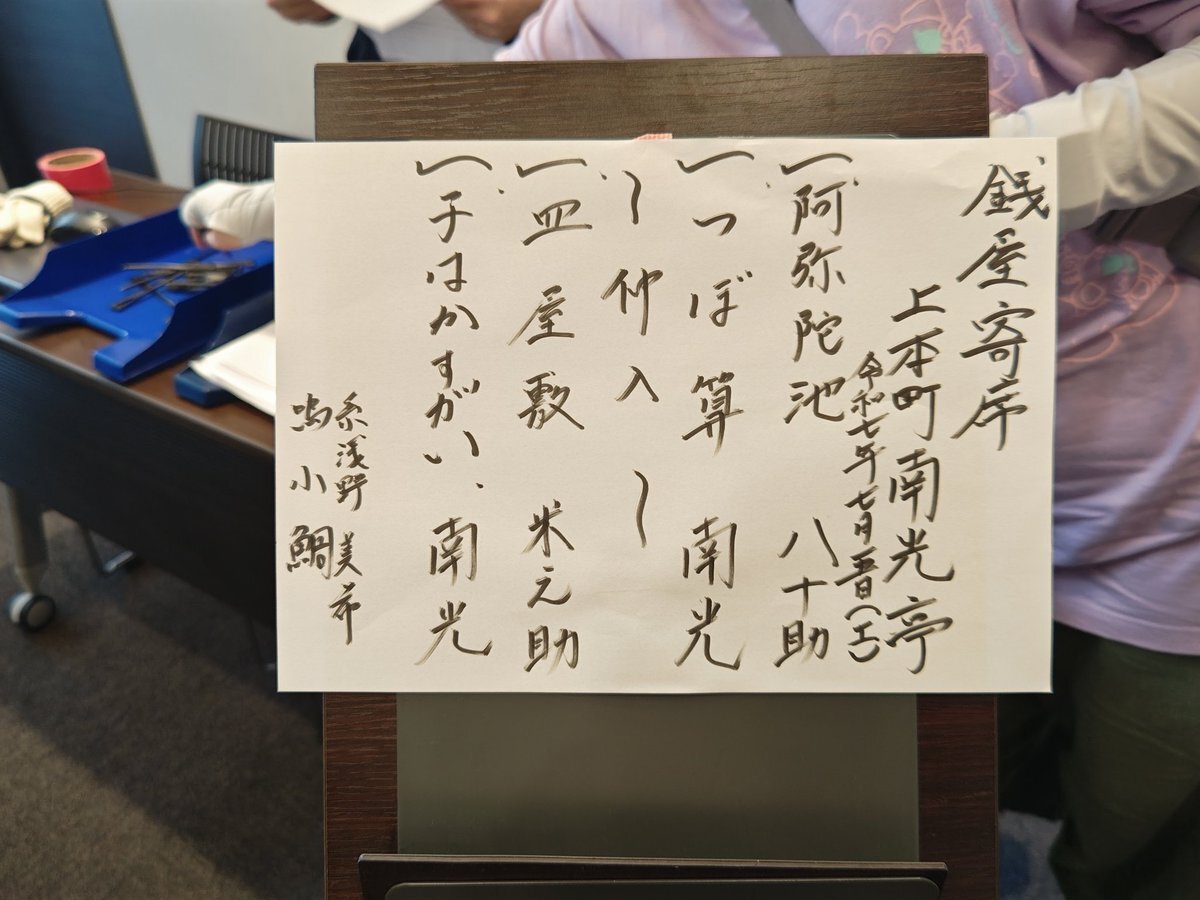 銭屋寄席
上本町南光亭
令和七年七月五日(土)
一、阿弥陀池 八十助
一、つぼ算 南光
〜仲入〜
一、皿屋敷 米之助
一、子はかすがい、南光
糸 浅野美希
鳴 小鯛